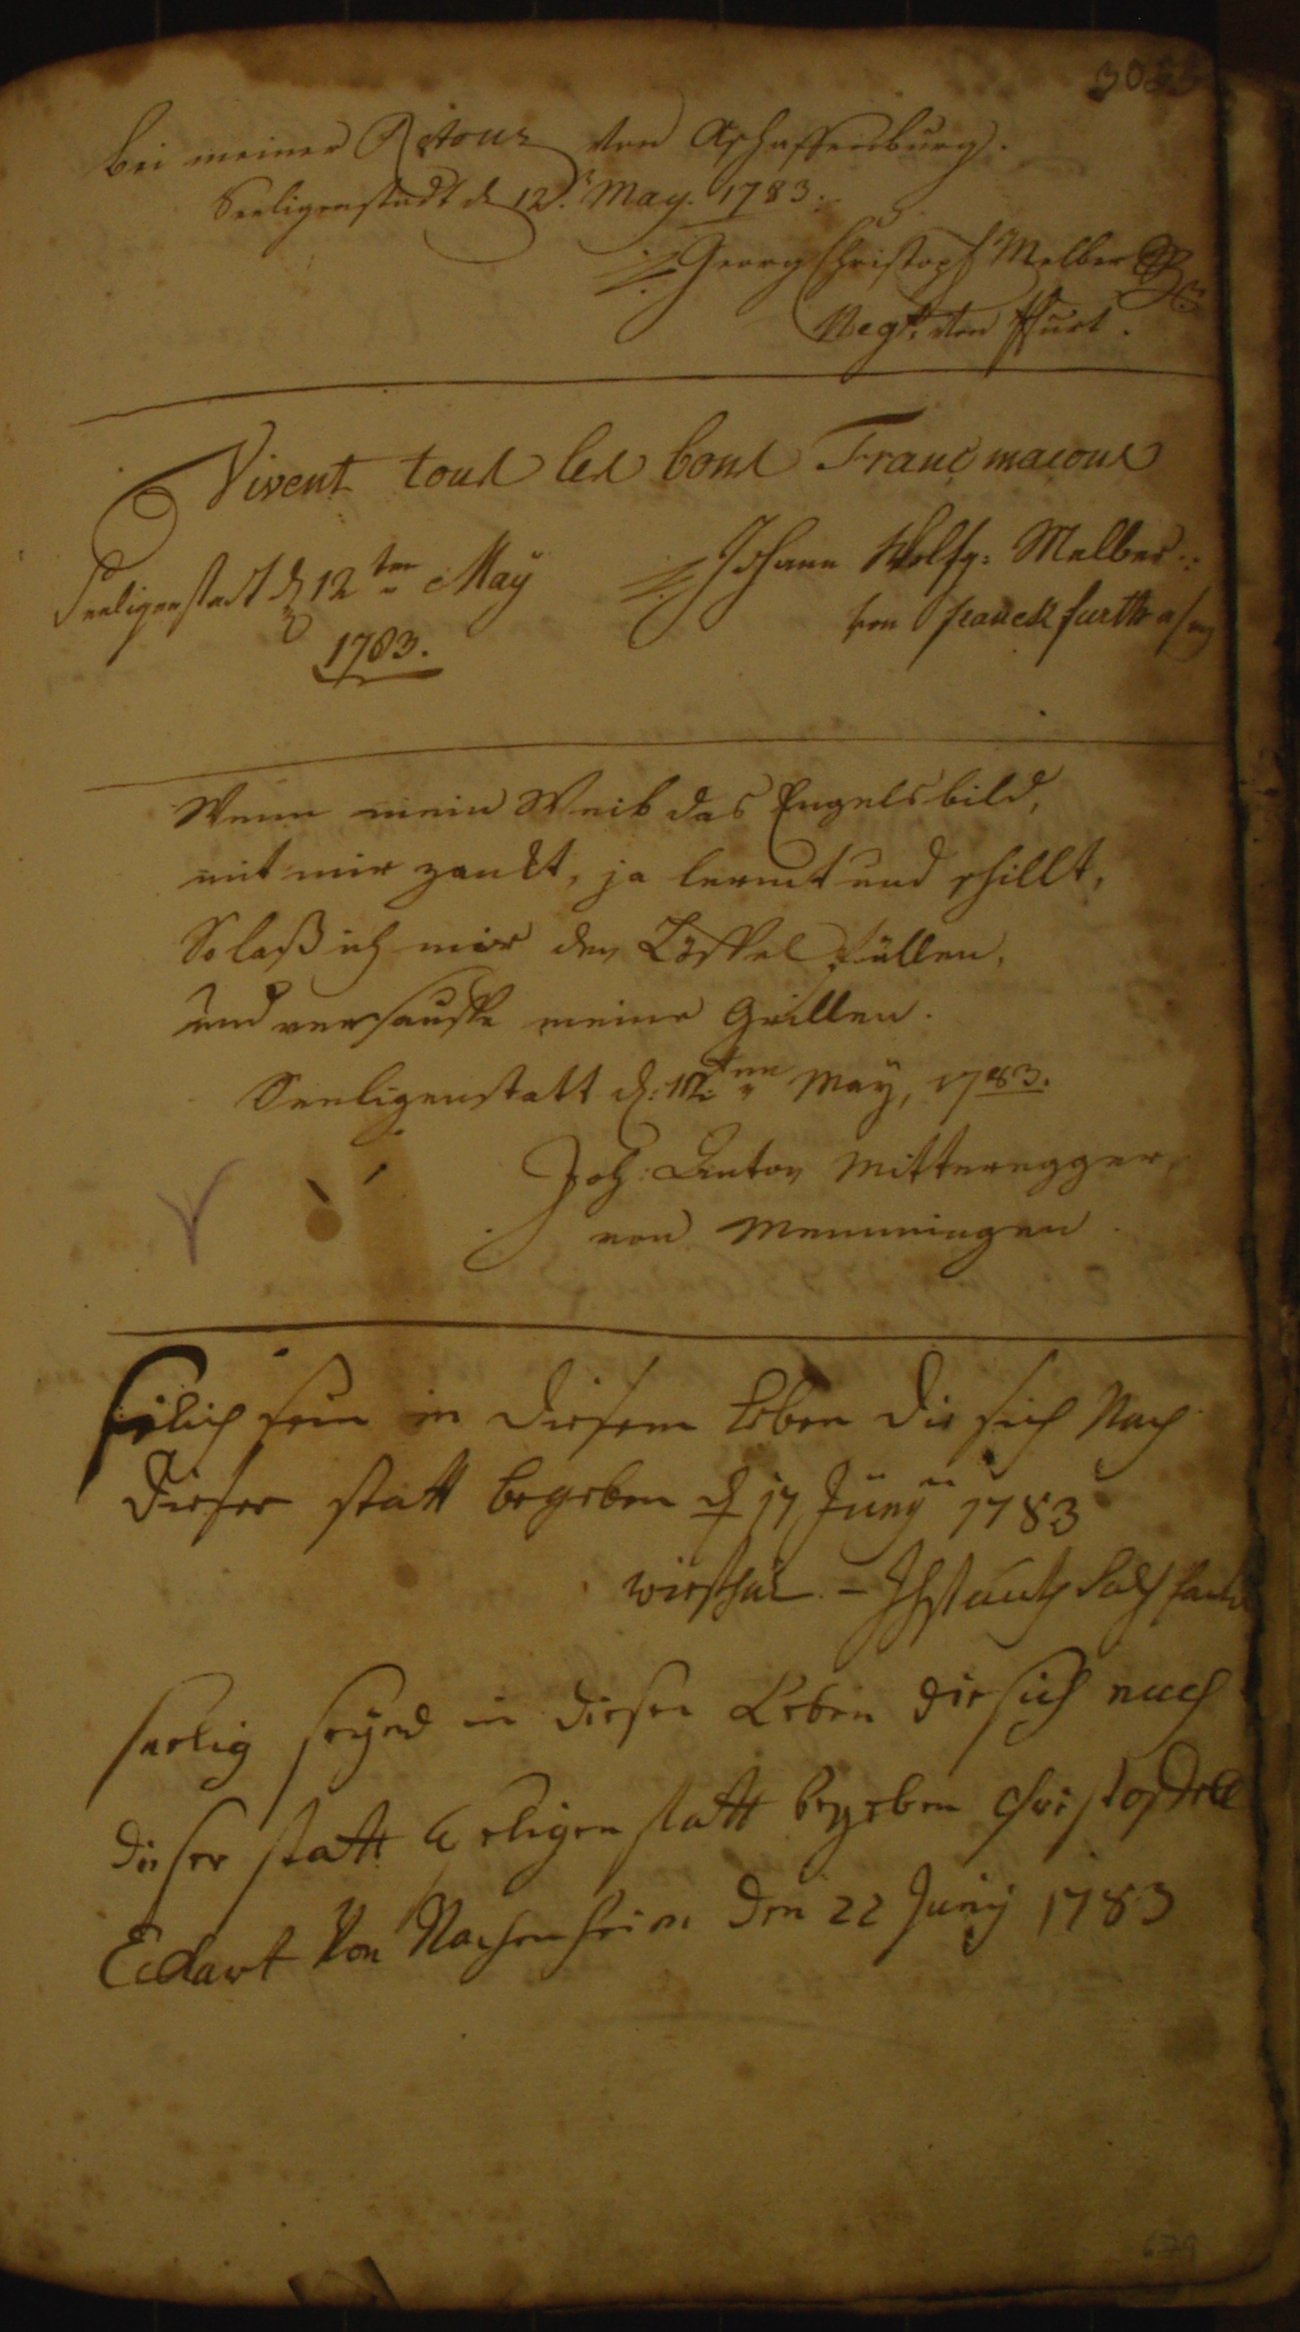 bei meiner Retour von Aschaffenburg.
Seeligenstadt d 12. May. 1783.
Georg Christoph Melber
Negt. von ffurt.
Vivent tous les bons Francmacons
Seeligenstadt d 12ten May
1783.
Johann Wolfg: Melber
von franckfurth a/m
Wenn mein Weib das Engelsbild,
mit mir zankt, ja lermt und schillt,
So laß ich mir den Löffel füllen,
und versauffe meine Grillen.
Seeligenstatt d: 12ten May, 1783.
Joh: Anton Mitteregger,
von Memmingen.
sein in diesem Leben die sich Nach
dieser statt begeben d 17 Juny 1783
seelig seynd in diesen Leben die sich nach
dieser statt Seligenstatt begeben
Eckart Von den 22 Juny 1783
679